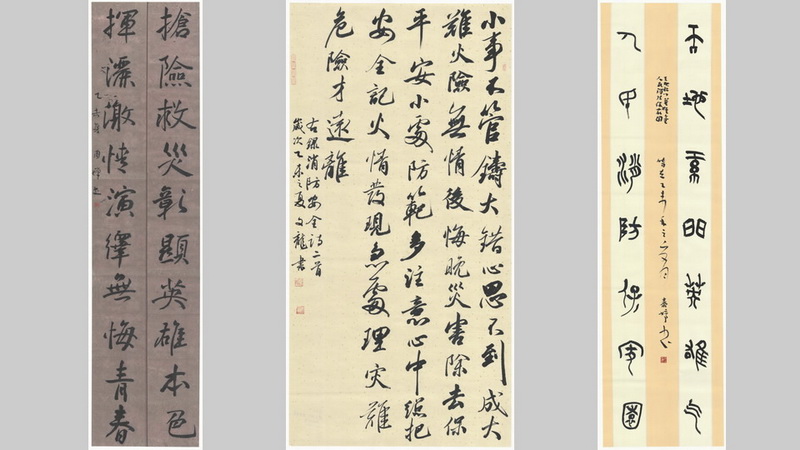 搶險救災彰顯英雄本色
揮灑激情演繹無悔青春
乙未夏
小事不管鑄大錯心思不到成大
難火險無情後悔晚災害除去保
平安小處防範多注意心中總把
安全記火情發現急處理灾難
危險才遠離
右録消防安全詩二首
歲次乙未之夏文龍書
地英雄氣
消防保家園